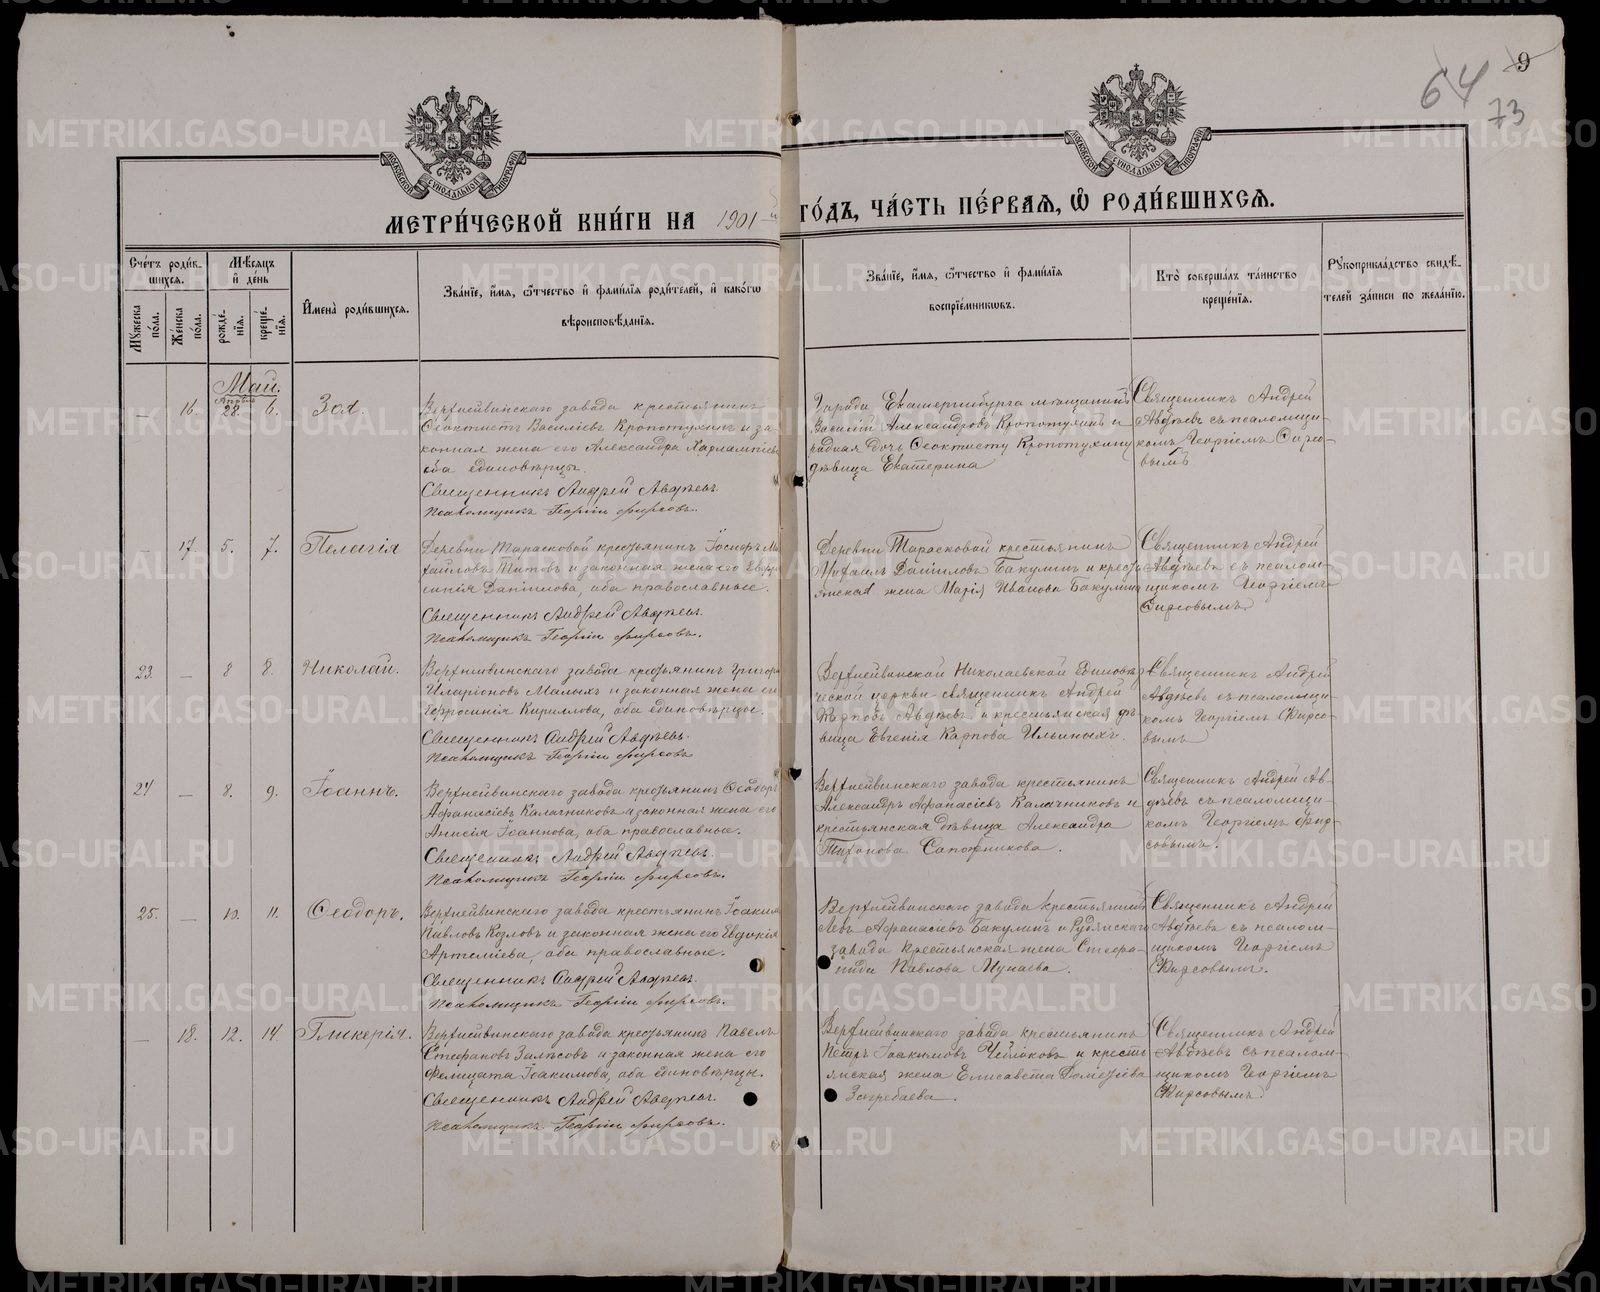 64
9
73
МОСКОВСКОЙ СѴНОДАЛЬНОЙ ТИПОГРАФІИ
МОСКОВСКОЙ СѴНОДАЛЬНОЙ ТИПОГРАФІИ
МЕТРИ́ЧЕСКОЙ КНИ́ГИ НА 1901-й ГО́ДЪ, ЧА́СТЬ ПЕ́РВАЯ, Ѡ РОДИ́ВШИХСЯ.
Сче́тъ роди́в-
шихся.
Мꙋжеска по́ла.
Же́нска по́ла.
Мѣ́сяцъ и де́нь
рожде́-нїя.
креще́-нїя.
И҆мена̀ роди́вшихся.
Зва́нїе, и҆́мя, ѻ҆́тчество и҆ фами́лїя роди́телей, и҆ како́гѡ
вѣроисповѣ́данїя.
Зва́нїе, и҆́мя, ѻ҆́тчество и҆ фами́лїя
воспрїе́мникѡвъ.
Кто̀ соверша́лъ та́инство
креще́нїя.
Рꙋкоприкла́дство свидѣ́-
телей за́писи по жела́нїю.
Май.
Апрѣль
— 16. 28. 6. Зоя.
Верхнейвинскаго завода крестьянинъ
Ѳеоктистъ Василіевъ Кропотухинъ и за-
конная жена его Александра Харлампіева
оба единовѣрцы.
Священникъ Андрей Авдѣевъ
Псаломщикъ Георгій Фирсовъ.
Города Екатеринбурга мѣщанинъ
Василій Александровъ Кропотухинъ и
родная дочь Ѳеоктисту Кропотухину
дѣвица Екатерина
Священникъ Андрей
Авдѣевъ съ псаломщи-
комъ Георгіемъ Фирсо-
вымъ
— 17. 5. 7. Пелагія
Деревни Тарасковой крестьянинъ Іосифъ Ми-
хайловъ Титовъ и законная жена его Евфро-
синія Данилова, оба православные.
Священникъ Андрей Авдѣевъ.
Псаломщикъ Георгій Фирсовъ.
Деревни Тарасковой крестьянинъ
Михаилъ Даніиловъ Бакулинъ и кресть-
янская жена Марія Иванова Бакулина
Священникъ Андрей
Авдѣевъ съ псалом-
щикомъ Георгіемъ
Фирсовымъ
23. — 8 8. Николай.
Верхнейвинскаго завода крестьянинъ Григорій
Иларіоновъ Малыхъ и законная жена его
Ефросинія Кириллова, оба единовѣрцы.
Священникъ Андрей Авдѣевъ.
Псаломщикъ Георгій Фирсовъ
Верхнейвинской Николаевской Единовѣр-
ческой церкви священникъ Андрей
Карповъ Авдѣевъ и крестьянская дѣ-
вица Евгенія Карпова Ильиныхъ.
Священникъ Андрей
Авдѣевъ съ псаломщи-
комъ Георгіемъ Фирсо-
вымъ
24 — 8. 9. Іоаннъ.
Верхнейвинскаго завода крестьянинъ Ѳеодоръ
Афанасіевъ Калачниковъ и законная жена его
Анисія Іоаннова, оба православные.
Священникъ Андрей Авдѣевъ.
Псаломщикъ Георгій Фирсовъ.
Верхнейвинскаго завода крестьянинъ
Александръ Афанасіевъ Калачниковъ и
крестьянская дѣвица Александра
Тихонова Сапожникова.
Священникъ Андрей Ав-
дѣевъ съ псаломщи-
комъ Георгіемъ Фир-
совымъ.
25. — 10. 11. Ѳеодоръ.
Верхнейвинскаго завода крестьянинъ Іоакимъ
Павловъ Козловъ и законная жена его Евдокія
Артеміева, оба православные.
Священникъ Андрей Авдѣевъ.
Псаломщикъ Георгій Фирсовъ.
Верхнейвинскаго завода крестьянинъ
Левъ Афанасіевъ Бакулинъ и Рудянскаго
завода крестьянская жена Стефа-
нида Павлова Мунаева.
Священникъ Андрей
Авдѣевъ съ псалом-
щикомъ Георгіемъ
Фирсовымъ.
— 18. 12. 14. Гликерія.
Верхнейвинскаго завода крестьянинъ Павелъ
Стефановъ Залѣсовъ и законная жена его
Фелицата Іоакимова, оба единовѣрцы.
Священникъ Андрей Авдѣевъ.
Псаломщикъ Георгій Фирсовъ.
Верхнейвинскаго завода крестьянинъ
Петръ Іоакимовъ и кресть-
янская жена Елисавета Дометіева
Загребаева.
Священникъ Андрей
Авдѣевъ съ псалом-
щикомъ Георгіемъ
Фирсовымъ
METRIKI.GASO-URAL.RU